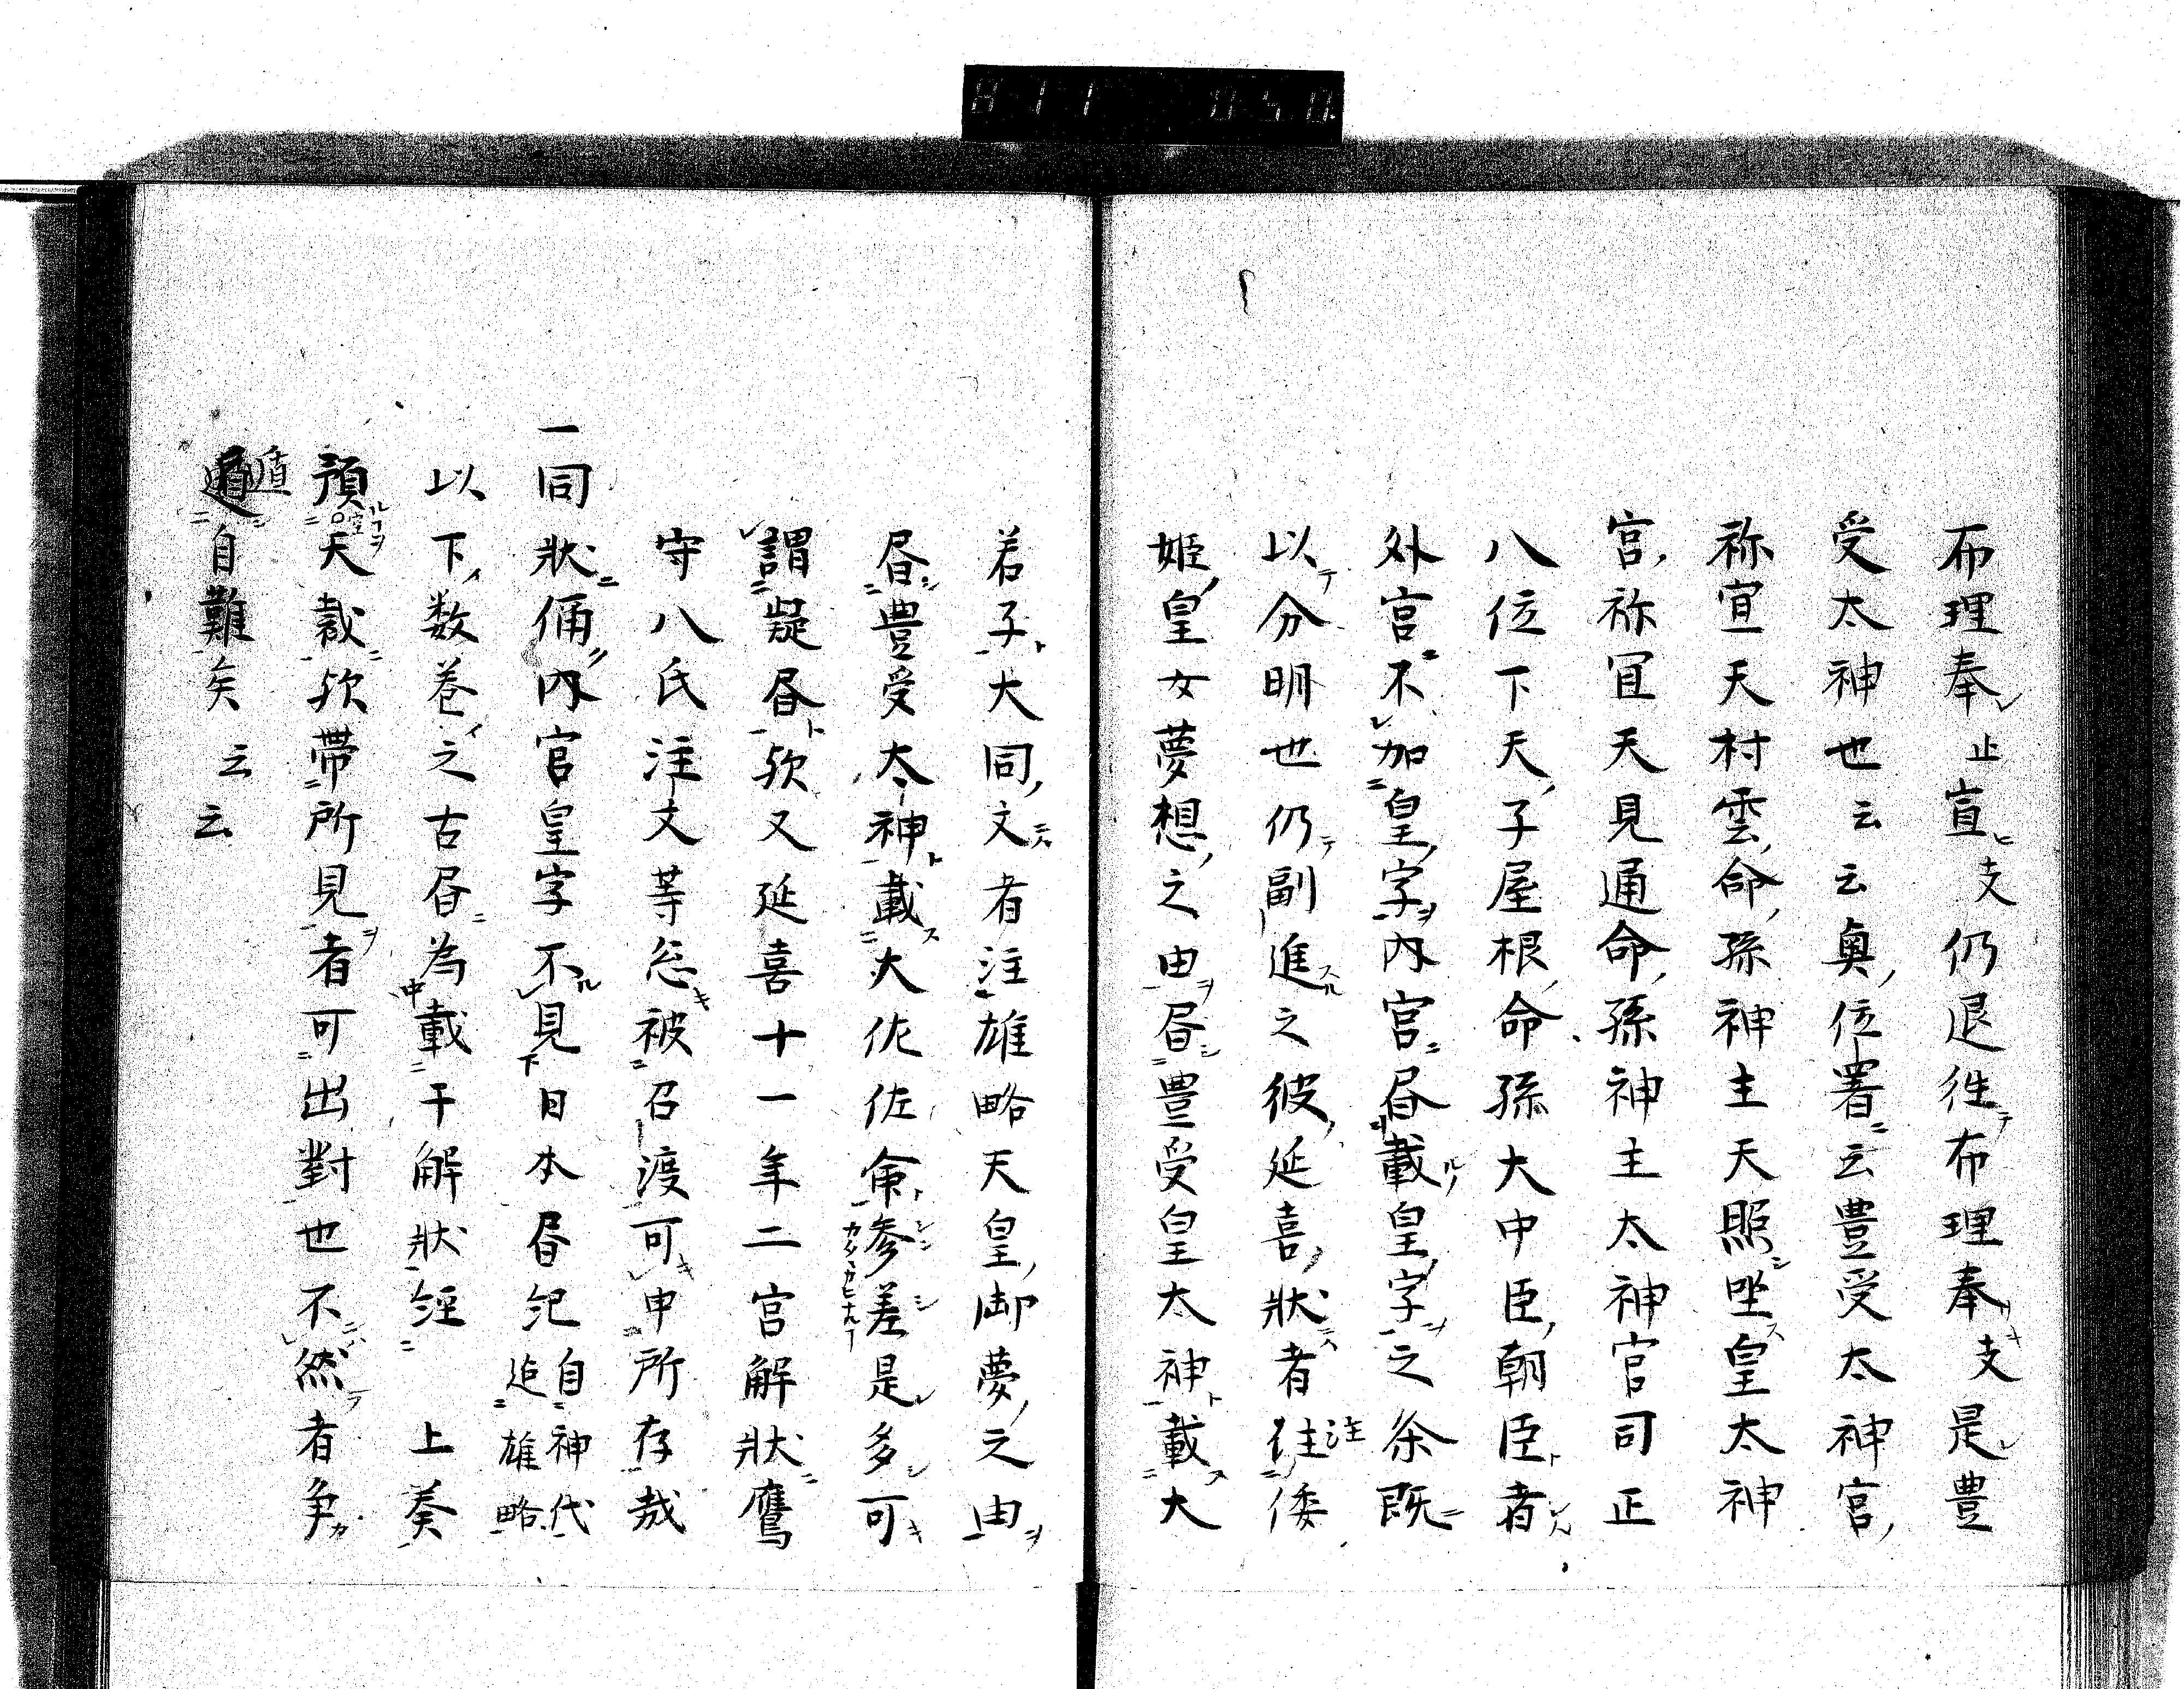 布理奉止宣支仍退往布理奉支是豊
受太神也云云奥位署云豊受太神宮
祢宜天村雲命孫神主天照坐皇太神
宮祢宜天見通命孫神主太神官司正
八位下天子屋根命孫大中臣朝臣者
外宮不加皇字内宮昼載皇字之条既
以分明也仍副進之彼延喜状者注倭
姫皇女夢想之由昼豊受皇太神載大
若子大同文者注雄略天皇御夢之由
昼豊受太神載大佐佐命参差是多可
謂疑昼欤又延喜十一年二宮解状鷹
守八氏注文等忩被召渡可申所存哉
一同状偁内官皇字不見日本昼紀自神代迄雄略
以下数巻之古昼為載于解状経 上奏
預天裁欤帯所見者可出對也不然者争
遁自難矣云云